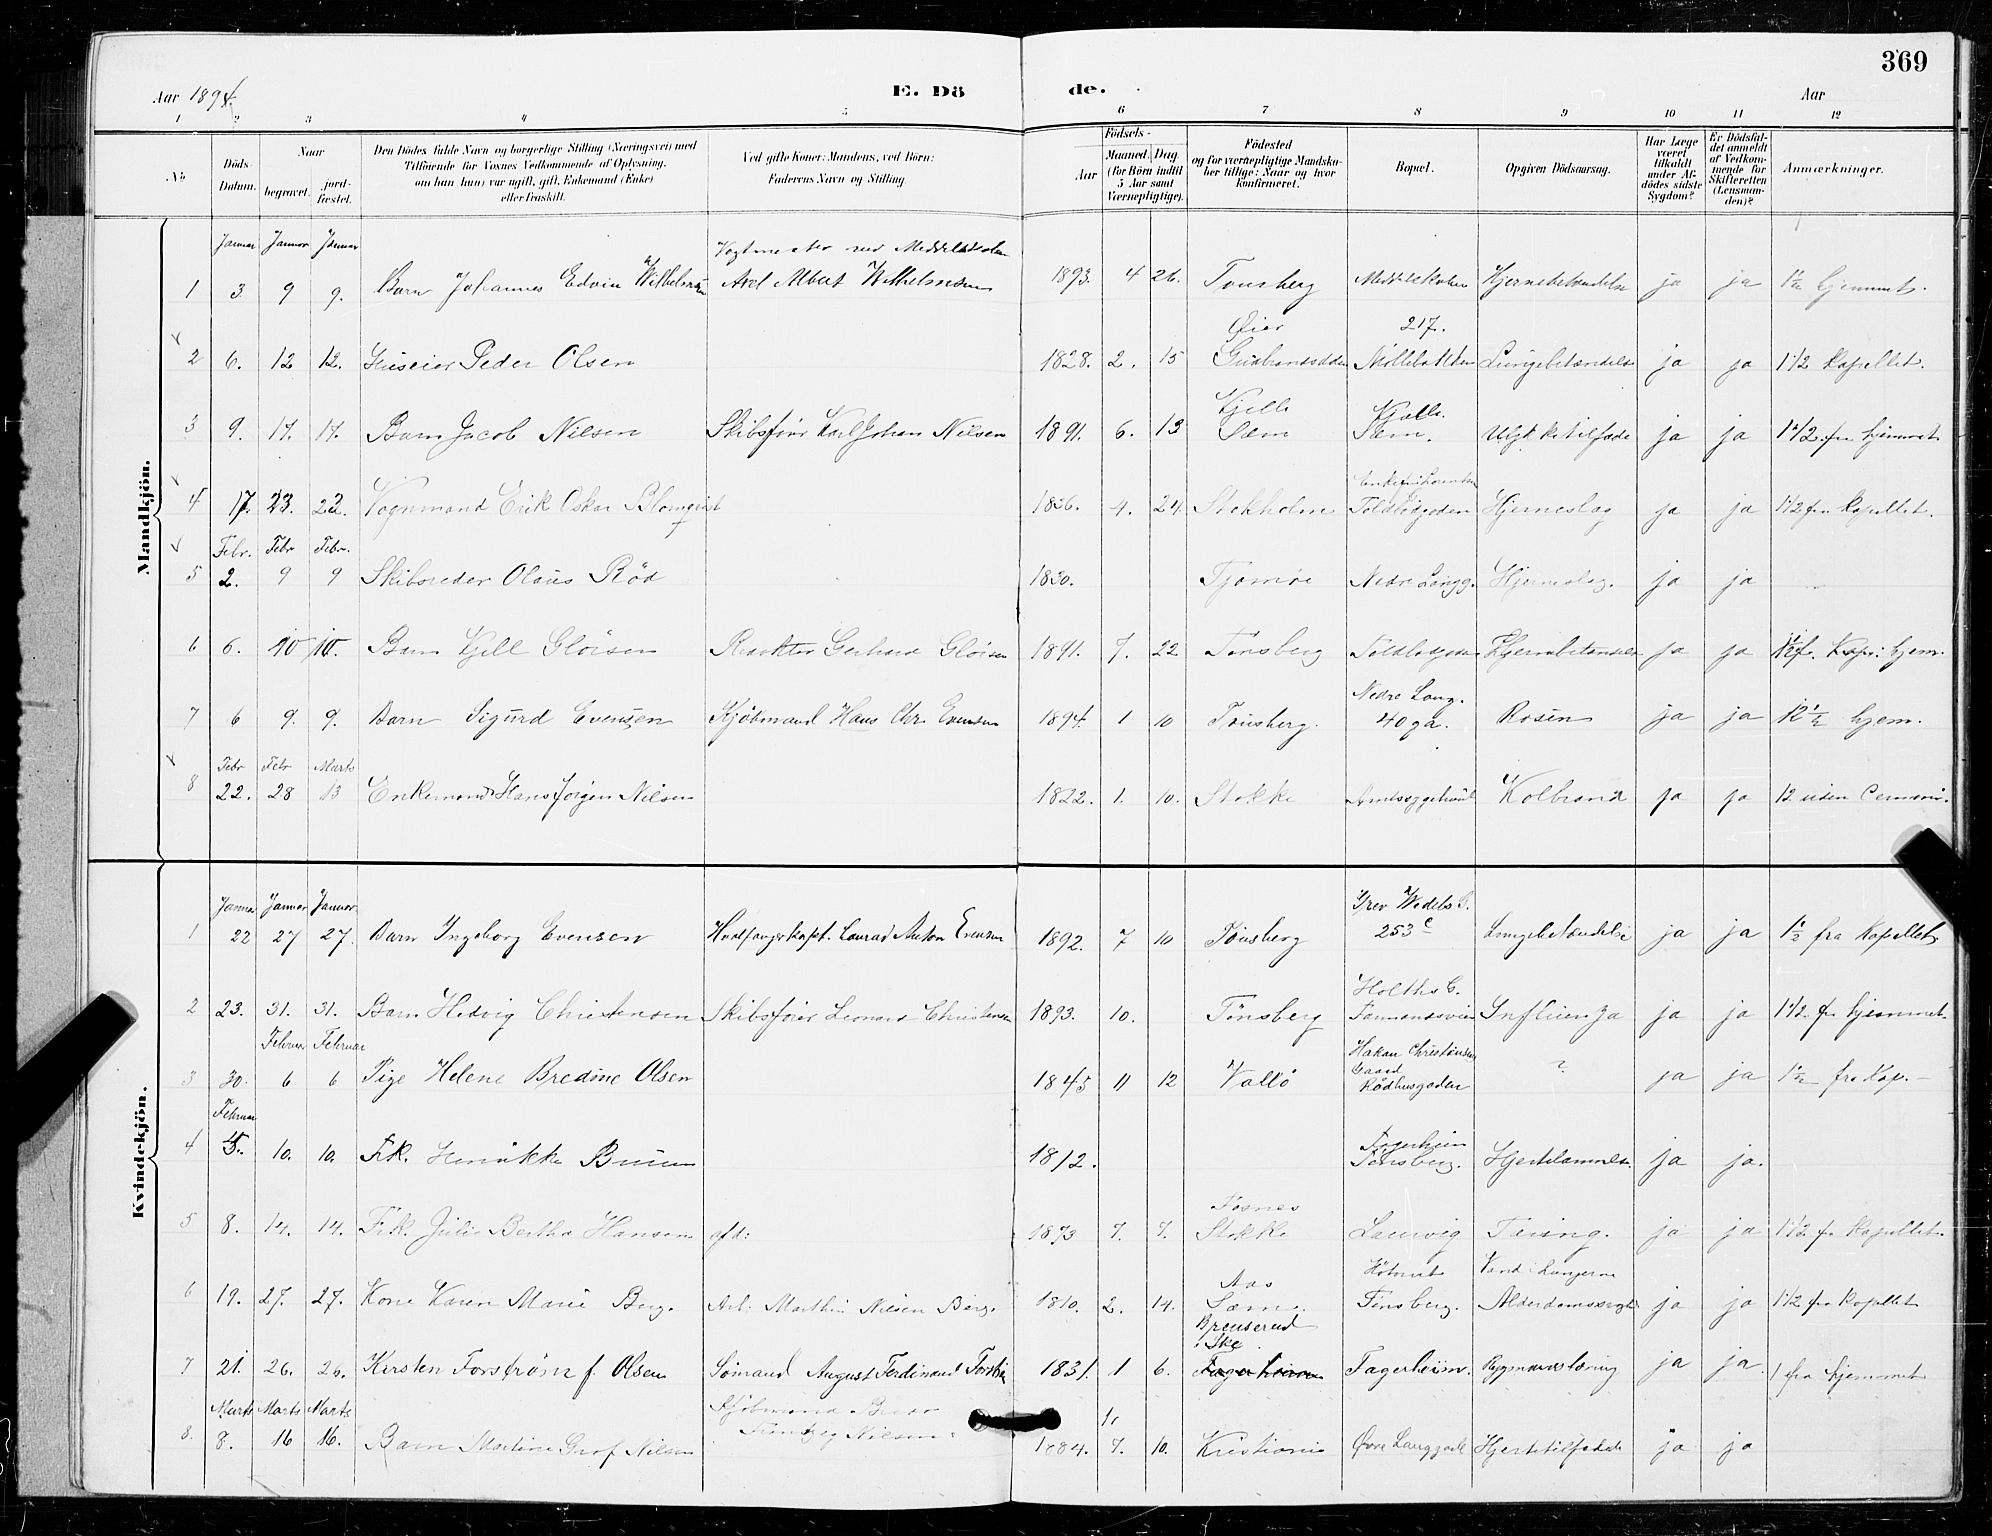 369
Aar 1894.
E. Dö
de.
Aar
1 2 3 4 5 6 7 8 9 10 11 12
No
Döds-Datum.
Naar
begravet.
jord-fæstet.
Den Dödes fulde Navn og borgerlige Stilling (Næringsvei) med
Tilföiende for Voxnes Vedkommende af Oplysning,
om han (hun) var ugift, gift, Enkemand (Enke)
eller fraskilt.
Ved gifte Koner: Mandens, ved Börn:
Faderens Navn og Stilling
Födsels-
Aar
Maaned. Dag
(for Börn indtil 5 Aar samt Værnepligtige).
Födested
og for værnepligtige Mandska-
ber tillige: Naar og hvor
konfirmeret.
Bopæl.
Opgiven Dödsaarsag.
Har Læge været tilkaldt under Af-dödes sidste Sygdom?
Er Dödsfal-det anmeldt af Vedkom-mende for Skifteretten (Lensman-den)?
Anmærkninger.
Mandkjön.
Januar Januar Januar Vagtmester ved Middelskolen
1 3 9 9. Barn Johannes Edvin Wilhelmsen Axel Albert Wilhelmsen 1893. 4 26. Tønsberg Middelskolen Hjernebetændelse ja ja 1½ hjemmet.
Øier 217.
2 6. 12 12. Huseier Peder Olsen 1828. 2. 15 Gudbrandsdalen Møllebakken Lungebetændelse ja ja 1 1/2 Kapellet.
Kjelle Kjelle
3 9. 17. 17. Barn Jacob Nilsen Skibsfører Karl Johan Nilsen 1891. 6. 13 Sæm Sæm. Ulykkestilfælde ja ja 1 1/2 fra hjemmet
4 17. 23. 23. Vognmand Erik Oskar Blomqvist 1836. 4. 24. Stokholm Toldbodgaden Hjerneslag ja ja 1 1/2 fra Kapellet.
Febr. Febr Febr.
5 2. 9 9 Skibsreder Olaus Rød 1830. Tjømøe Nedre Langg. Hjerneslag. ja ja
6 6. 10 10. Barn Kjell Gløersen Redaktør Gerhard Gløersen 1891. 7. 22 Tønsberg Toldbodgaden Hjernebetændelse ja ja
Nedre Lang.
7 6 9. 9. Barn Sigurd Evensen Kjøbmand Hans Chr. Evensen 1894. 1 10 Tønsberg. 40 ga. Rosen ja ja 12½ hjem.
Febr Febr Marts
8 22. 28 13 Enkemand Hans Jørgen Nilsen 1822. 1. 10. Stokke Amtssygehuset Kolbrand ja ja 12 uden Cermoni.
Kvindekjön.
Januar Januar Januar Grev Wedels G.
1 22 27 27. Barn Ingeborg Evensen Hvalfangerkapt. Laurad Anton Evensen 1892. 7 10 Tønsberg 253 c Lungebetændelse ja ja 1½ fra Kapellet
Holths G.
2 23. 31. 31. Barn Hedvig Christensen Skibsfører Leonard Christensen 1893. 10. Tønsberg Influenza ja ja 1 1/2 fr hjemmet.
Februar Februar Hakan Christensen Gaard
3 30. 6 6 Pige Helene Bredine Olsen 1845 11 12 Vallø Rådhusgaden ? ja ja 1½ fra Kap.
Februar Fagerheim
4 5. 10. 10. Frk. Henrikke Bruun 1812. Tønsberg. Hjertelammelse ja ja.
5 8. 14. 14. Frk. Julie Bertha Hansen afd: 1873 7. 7. Stokke Laurvig Tæring. ja ja 1 1/2 fr Kapellet.
Aas Vand i Lungerne
6 19. 27. 27. Kone Karen Marie Berg. Arb. Marthin Nilsen Berg. 1810. 2. 14. Sæm. Tønsberg. Alderdomssvaghed ja ja 1 1/2 fra Kapellet
Brenserud
i Ske
7 21. 26. 26. Kirsten Forstrøm f. Olsen Sømand August Ferdinand Forstrøm 1831. 1 6. Fagerheim Fagerheim. Rygmarvstæring ja ja 1 fra hjemmet
Marts Marts Marts Kjøbmand
8. 8. 16 16. Barn Martine Grof Nilsen Nilsen. 1884. 7. 10. Kristiania Øvre Langgade Hjertetilfælde ja ja